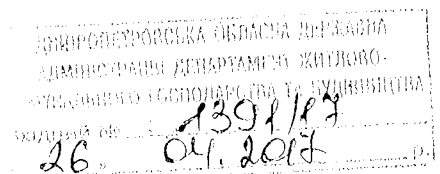 ДНІПРОПЕТРОВСЬКА ОБЛАСНА ДЕРЖАВНА
АДМІНІСТРАЦІЯ ДЕПАРТАМЕНТ ЖИТЛОВО-
КОМУНАЛЬНОГО ГОСПОДАРСТВА ТА БУДІВНИЦТВА
№ 1391/17
26. 04. 2017 р.